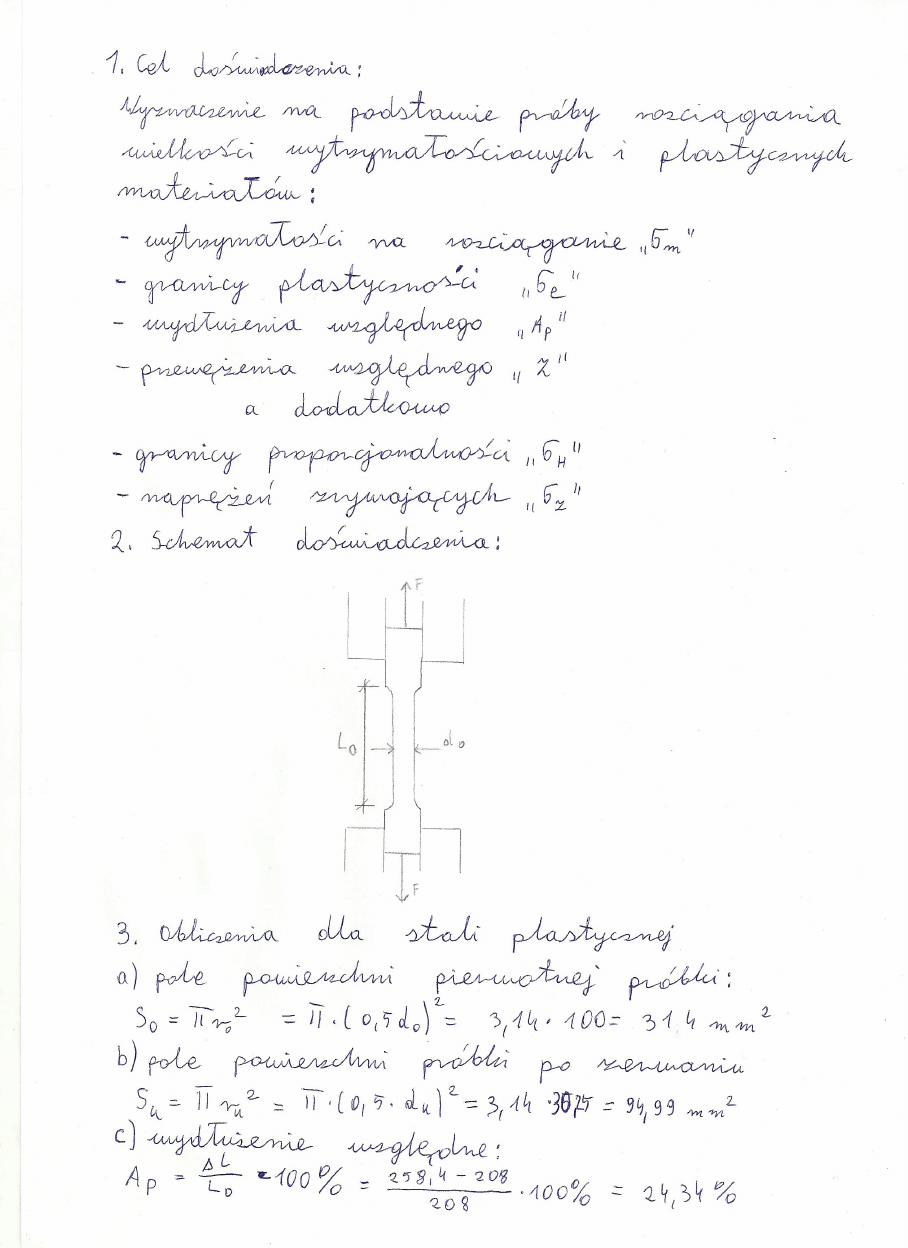 1. Cel doświadczenia:
Wyznaczenie na podstawie próby rozciągania
wielkości wytrzymałościowych i plastycznych
materiałów:
- wytrzymałości na rozciąganie „σm"
- granicy plastyczności „σe"
- wydłużenia względnego „Ap"
- przewężenia względnego „Z"
a dodatkowo
- granicy proporcjonalności „σH"
- naprężeń zrywających „σz"
2. Schemat doświadczenia:
F
L₀ d₀
F
3. Obliczenia dla stali plastycznej
a) pole powierzchni pierwotnej próbki:
S₀ = πr₀² = π·(0,5d₀)² = 3,14·100 = 314 mm²
b) pole powierzchni próbki po zerwaniu
Su = πru² = π·(0,5·du)² = 3,14 · = 94,99 mm²
c) wydłużenie względne:
Ap = ΔL/L₀ · 100% = (258,4 - 208)/208 · 100% = 24,34%